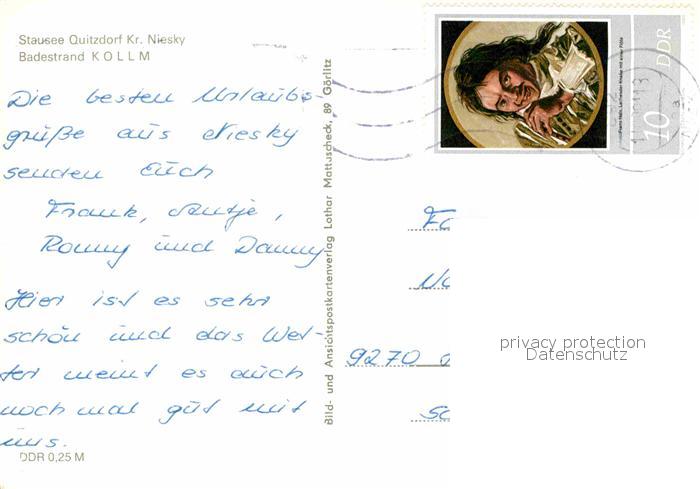 Stausee Quitzdorf Kr. Niesky
Badestrand KOLLM
Die besten Urlaubs-
grüße aus Niesky
senden Euch
Frank, Antje,
Ronny und Danny
Hier ist es sehr
schön und das Wet-
ter meint es auch
noch mal gut mit
uns.
DDR 0,25 M
Bild- und Ansichtspostkartenverlag Lothar Mattuscheck, 89 Görlitz
Frans Hals, Lachender Knabe mit einer Flöte
10 DDR
Fa
9270
privacy protection
Datenschutz